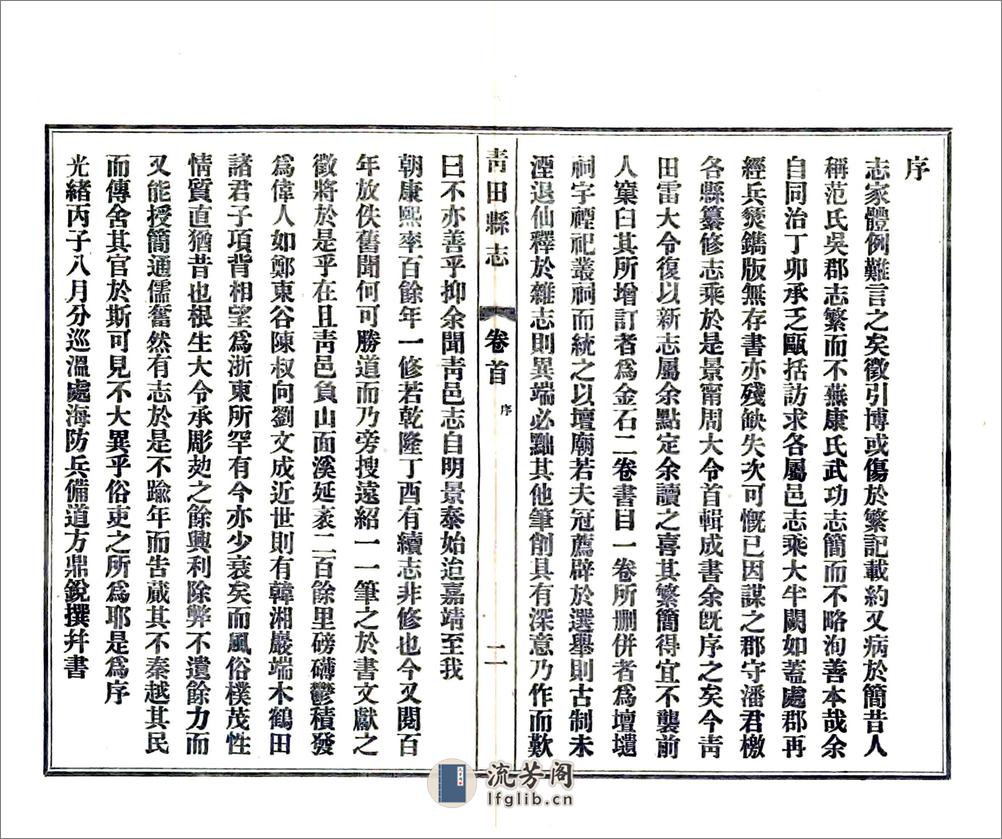 序
志家體例難言之矣徵引博或傷於繁記載約又病於簡昔人
稱范氏吳郡志繁而不蕪康氏武功志簡而不略洵善本哉余
自同治丁卯承乏甌括訪求各屬邑志乘大半闕如蓋處郡再
經兵燹鐫版無存書亦殘缺失次可慨已因謀之郡守潘君檄
各縣纂修志乘於是景甯周大令首輯成書余旣序之矣今靑
田雷大令復以新志屬余點定余讀之喜其繁簡得宜不襲前
人窠臼其所增訂者爲金石二卷書目一卷所刪併者爲壇壝
祠宇禋祀叢祠而統之以壇廟若夫冠薦辟於選舉則古制未
湮退仙釋於雜志則異端必黜其他筆削具有深意乃作而歎
靑田縣志
卷首
序
二
曰不亦善乎抑余聞靑邑志自明景泰始迨嘉靖至我
朝康熙率百餘年一修若乾隆丁酉有續志非修也今又閱百
年放佚舊聞何可勝道而乃旁搜遠紹一一筆之於書文獻之
徵將於是乎在且靑邑負山面溪延袤二百餘里磅礴鬱積發
爲偉人如鄭東谷陳叔向劉文成近世則有韓湘巖端木鶴田
諸君子項背相望爲浙東所罕有今亦少衰矣而風俗樸茂性
情質直猶昔也根生大令承彫攰之餘興利除弊不遺餘力而
又能授簡通儒奮然有志於是不踰年而告蕆其不秦越其民
而傳舍其官於斯可見不大異乎俗吏之所爲耶是爲序
光緒丙子八月分巡溫處海防兵備道方鼎銳撰幷書
流芳阁
lfglib.cn